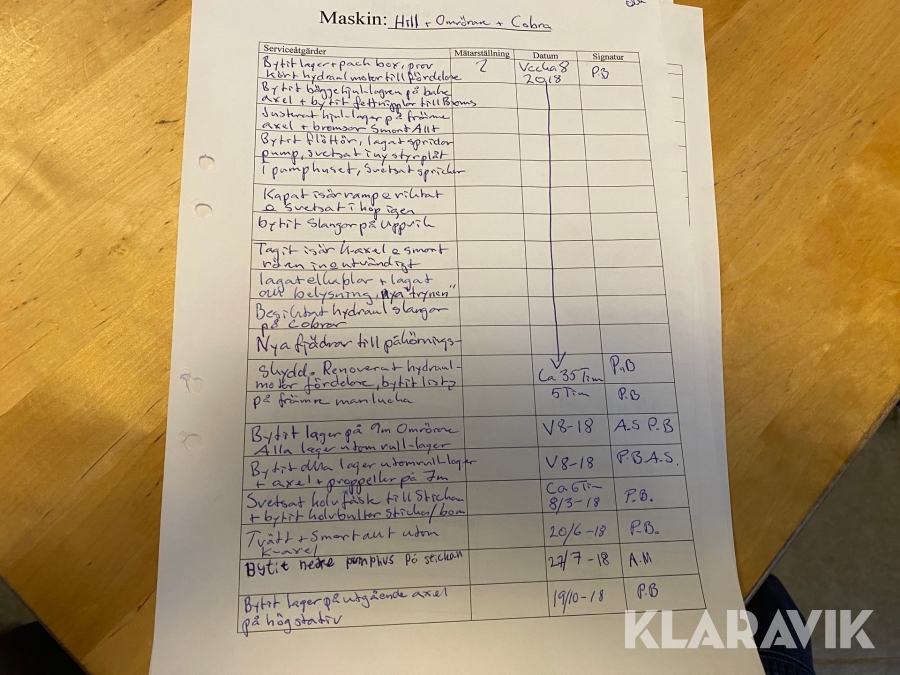 Maskin: Hill + Omrörare + Cobra
Serviceåtgärder Mätarställning Datum Signatur
Bytit lager + pack box, prov 2 Vecka 8 P.B
kört hydraulmotor till fördelare 2018
Bytit bägge hjul-lagren på bakre
axel + bytit fettnipplar till Broms
Justerat hjul-lager på främre
axel + bromsor Smort Allt
Bytit flöttör, lagat spridar
pump, svetsat i ny styrplåt
I pumphuset, Svetsat sprickor
Kapat isär ramp o riktat
o Svetsat ihop igen
bytit Slangor på uppvik
Tagit isär K-axel o smort
rören in o utvändigt
lagat elkaplar + lagat
belysning, nya "trynen"
Besiktat hydraul slangar
på Cobror
Nya fjädrar till påkörnings-
skydd. Renoverat hydraul- Ca 35 Tim P.B
motor fördelare, bytit list
på främre manlucka 5 Tim P.B
Bytit lager på 9m Omrörare V8-18 A.S P.B
Alla lager utom rull-lager
Bytit alla lager utom rull-lager V8-18 P.B A.S.
+ axel + proppeller på 7m
Svetsat holvfäste till Stickan Ca 6 Tim P.B.
+ bytit holvbultar Stickos/bom 8/3-18
Tvätt + Smort allt utom 20/6-18 P.B.
K-axel
Bytit nedre pumphus på stickan 27/7-18 A.M
Bytit lager på utgående axel 19/10-18 P.B
på högstativ
KLARAVIK